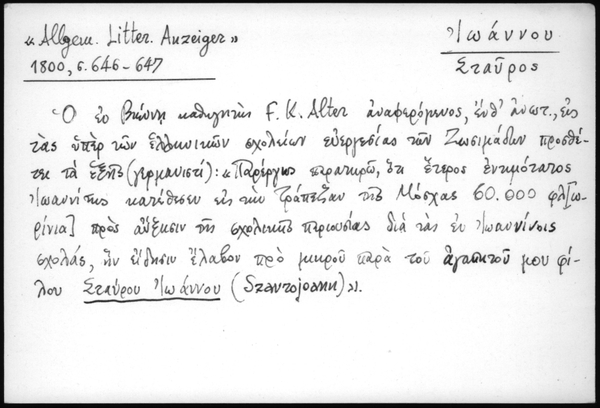 «Allgem. Litter. Anzeiger»
1800, σ. 646-647
Ἰωάννου
Σταῦρος
Ὁ ἐν Βιέννῃ καθηγητὴς F. K. Alter ἀναφερόμενος, ἔνθ' ἀνωτ., εἰς
τὰς ὑπὲρ τῶν ἑλληνικῶν σχολείων εὐεργεσίας τῶν Ζωσιμάδων προσθέ-
τει τὰ ἑξῆς (γερμανιστί): «Παρέργως παρατηρῶ, ὅτι ἕτερος ἐντιμότατος
Ἰωαννίτης κατέθεσεν εἰς τὴν Τράπεζαν τῆς Μόσχας 60.000 φλ[ω-
ρίνια] πρὸς αὔξησιν τῆς σχολικῆς περιουσίας διὰ τὰς ἐν Ἰωαννίνοις
σχολάς, ἣν εἴδησιν ἔλαβον πρὸ μικροῦ παρὰ τοῦ ἀγαπητοῦ μου φί-
λου Σταύρου Ἰωάννου (Szantojoann)».